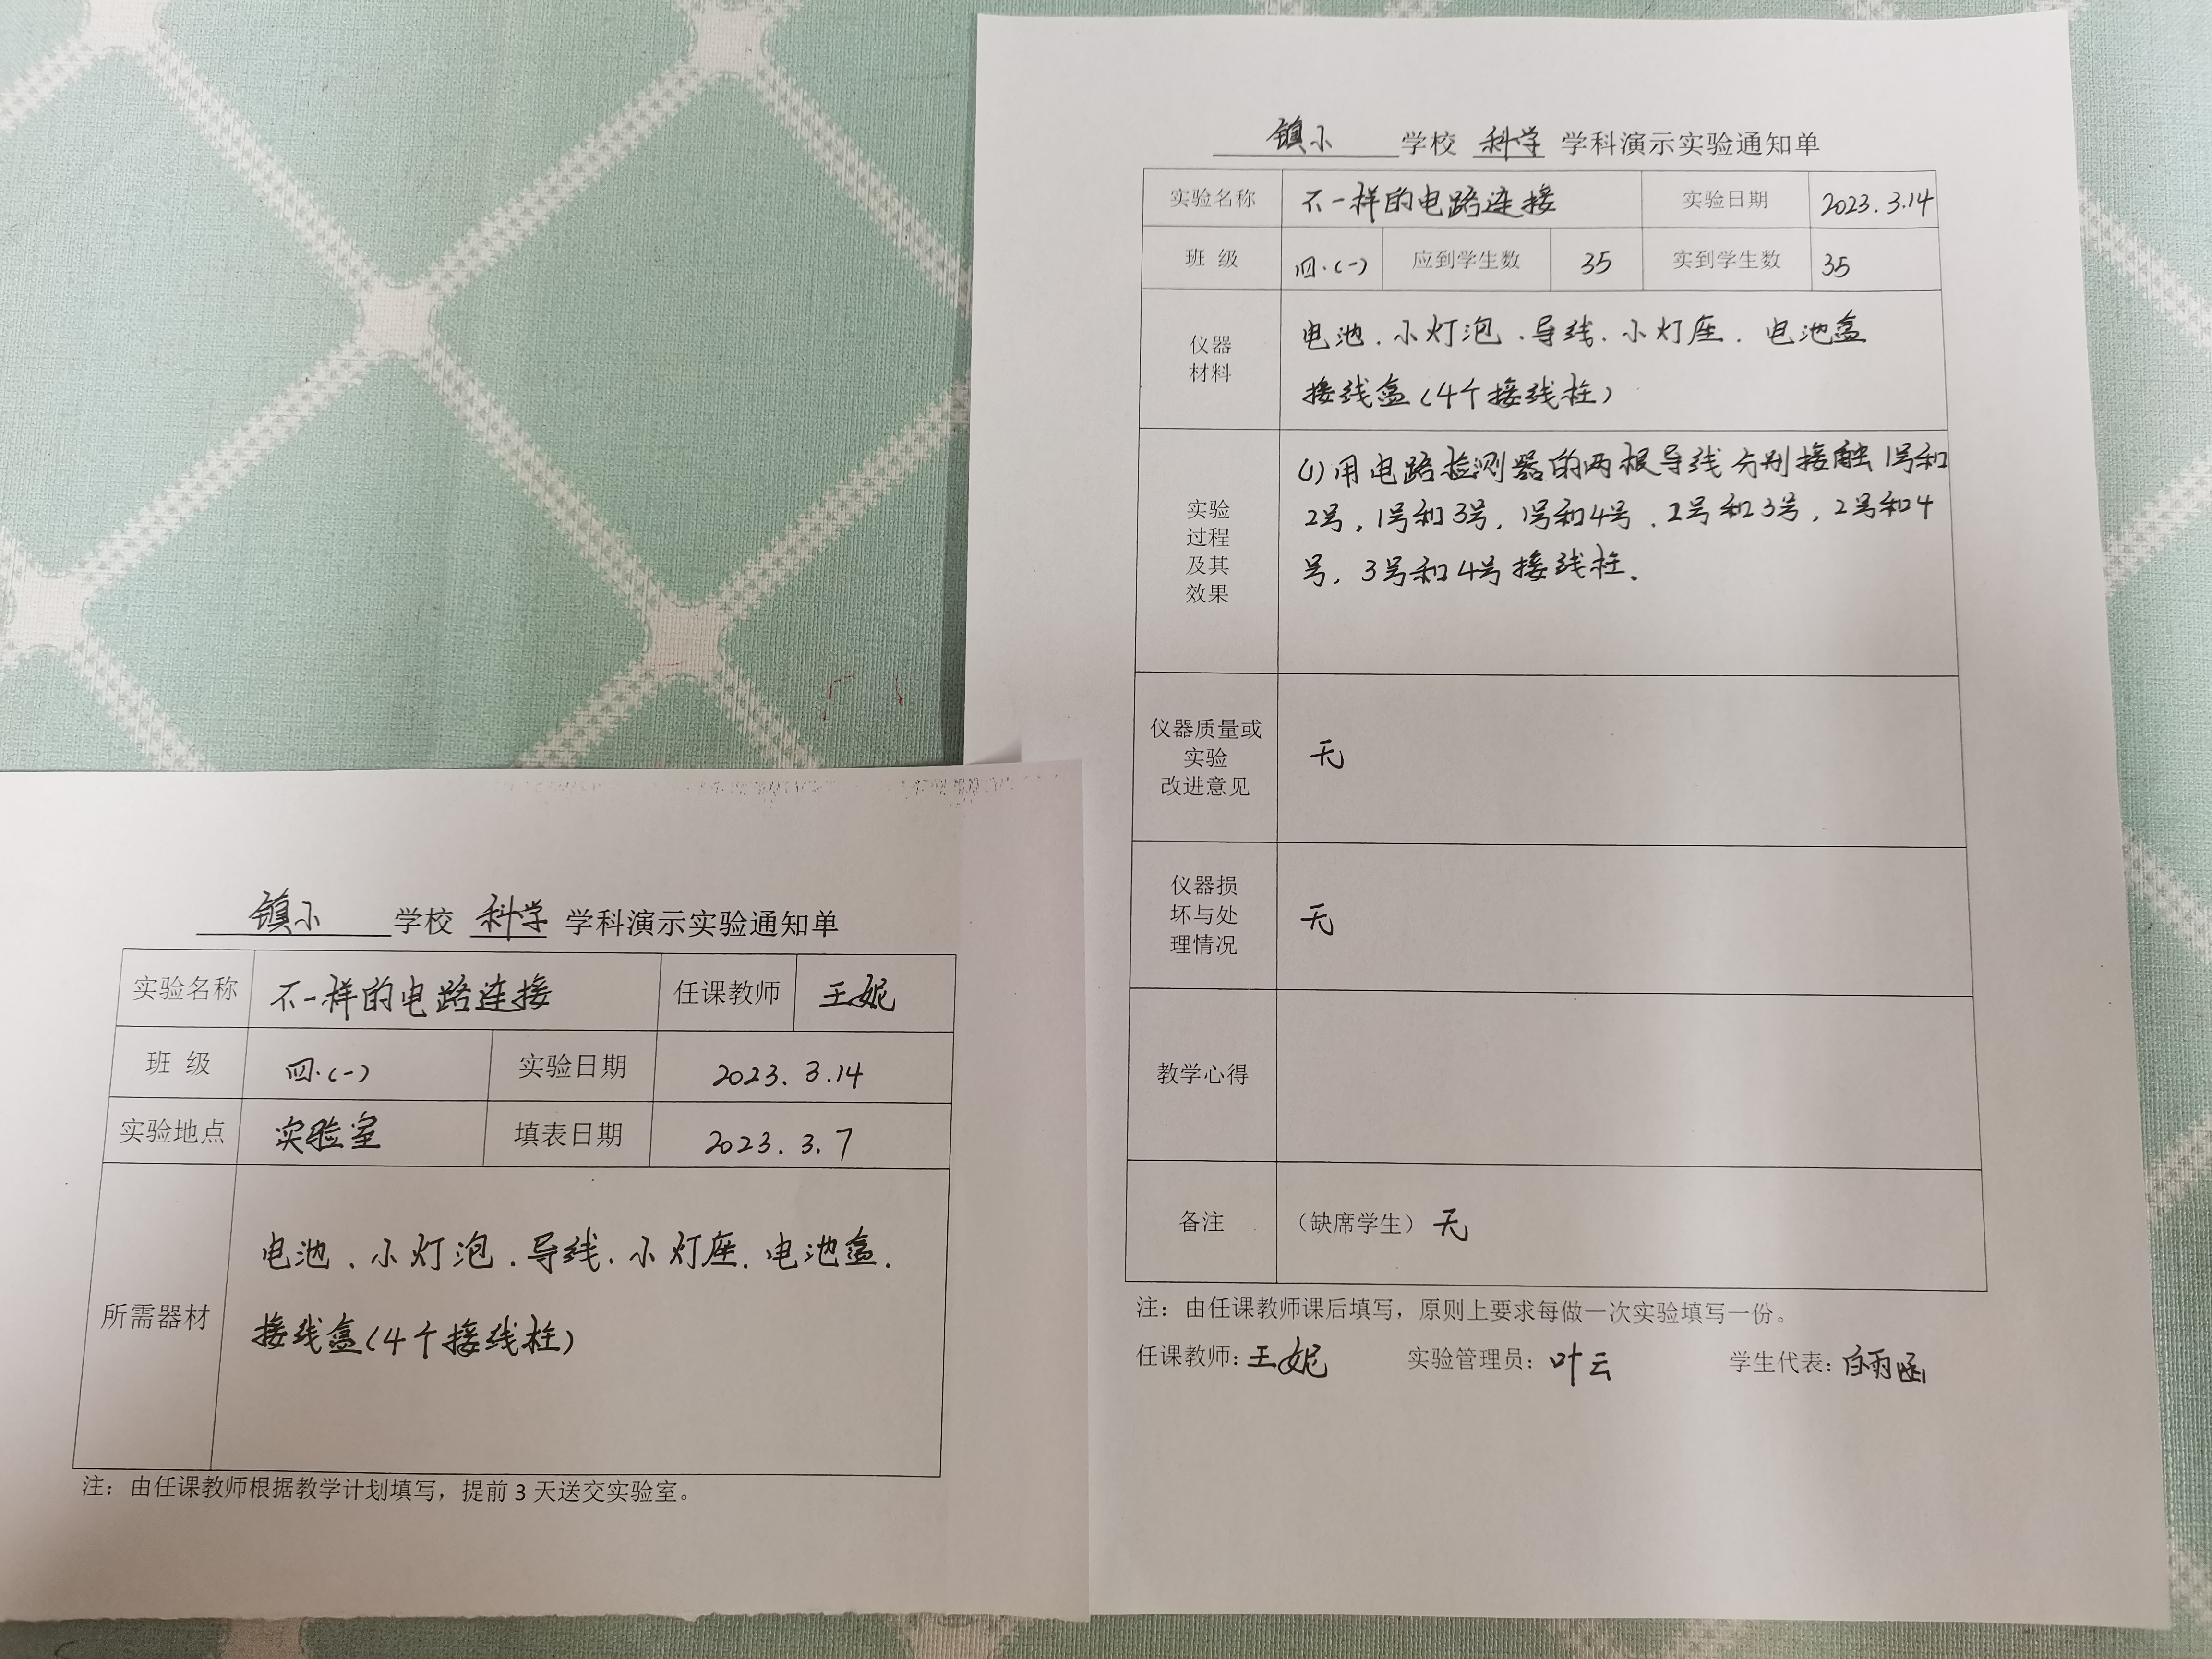 镇小 学校 科学 学科演示实验通知单
实验名称 不一样的电路连接 任课教师 王妮
班 级 四.(一) 实验日期 2023.3.14
实验地点 实验室 填表日期 2023.3.7
所需器材
电池.小灯泡.导线.小灯座.电池盒.
接线盒(4个接线柱)
注：由任课教师根据教学计划填写，提前3天送交实验室。
镇小 学校 科学 学科演示实验通知单
实验名称 不一样的电路连接 实验日期 2023.3.14
班 级 四.(一) 应到学生数 35 实到学生数 35
仪器
材料
电池.小灯泡.导线.小灯座.电池盒
接线盒(4个接线柱)
实验
过程
及其
效果
(1)用电路检测器的两根导线分别接触1号和
2号,1号和3号,1号和4号.2号和3号,2号和4
号,3号和4号接线柱.
仪器质量或
实验
改进意见
无
仪器损
坏与处
理情况
无
教学心得
备注 （缺席学生）无
注：由任课教师课后填写，原则上要求每做一次实验填写一份。
任课教师:王妮 实验管理员:叶云 学生代表:白雨函